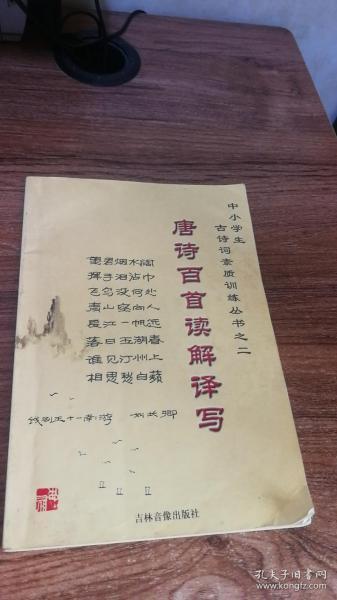 中小学生
古诗词素质训练丛书之二
唐诗百首读解译写
望君烟水阔
挥手泪沾巾
飞鸟没何处
青山空向人
长江一帆远
落日五湖春
谁见汀州上
相思愁白蘋
饯别王十一南游 刘长卿
吉林音像出版社
孔夫子旧书网